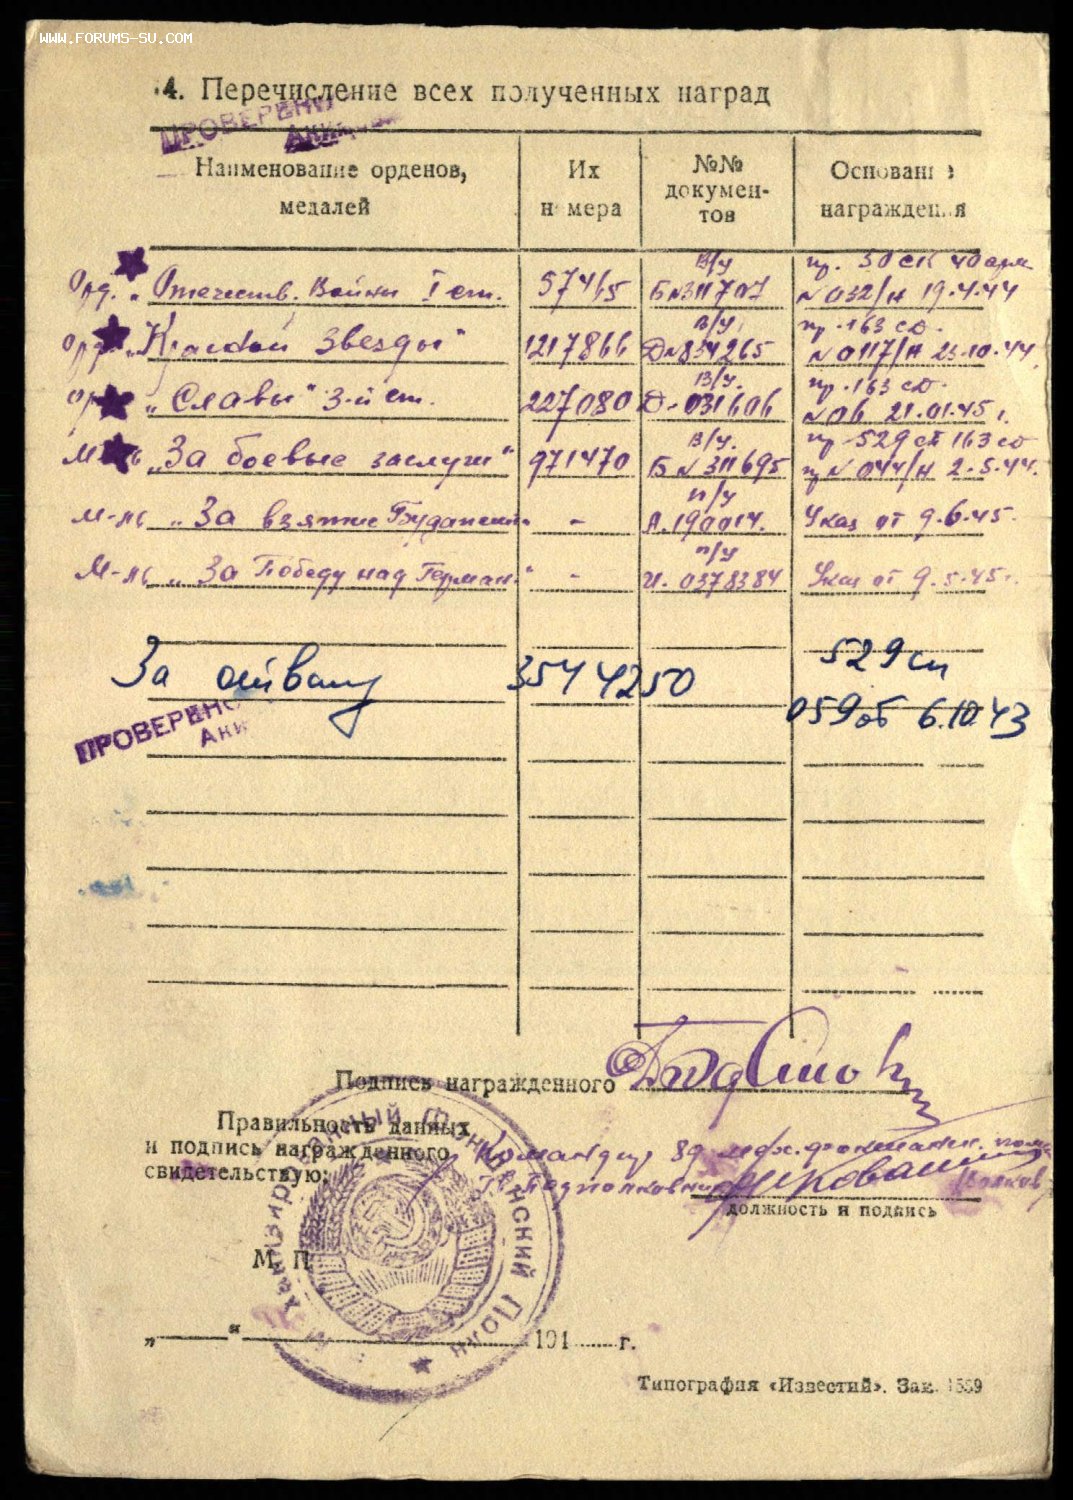 WWW.FORUMS-SU.COM
4. Перечисление всех полученных наград
ПРОВЕРЕНО
Наименование орденов, медалей
Их номера
№№ документов
Основание награждения
Орд. „Отечеств. Войны I ст. 57465 в/у Б№311707 пр. 50 ск 40 арм. №032/н 19.4.44
орд. „Красной Звезды" 1217866 в/у. Д№834265 пр. 163 сд. №0117/н 23.10.44.
орд. „Славы" 3-й ст. 227080 в/у. Д-031606 пр. 163 сд. №06 21.01.45 г.
М-ль „За боевые заслуги" 971470 в/у. Б№311695 пр 529 сп 163 сд пр№044/н 2.5.44.
М-ль „За взятие Будапешт." - п/у А.190014. Указ от 9.6.45.
М-ль „За Победу над Герман." - п/у И. 0378384 Указ от 9.5.45 г.
За отвагу 3544250 529 сп
059 об 6.10.43
ПРОВЕРЕНО
Подпись награжденного
Правильность данных
и подпись награжденного
свидетельствую:
Командир 89
Подполковник
должность и подпись
М. П.
„ " 194 г.
Типография «Известий». Зак. 1559